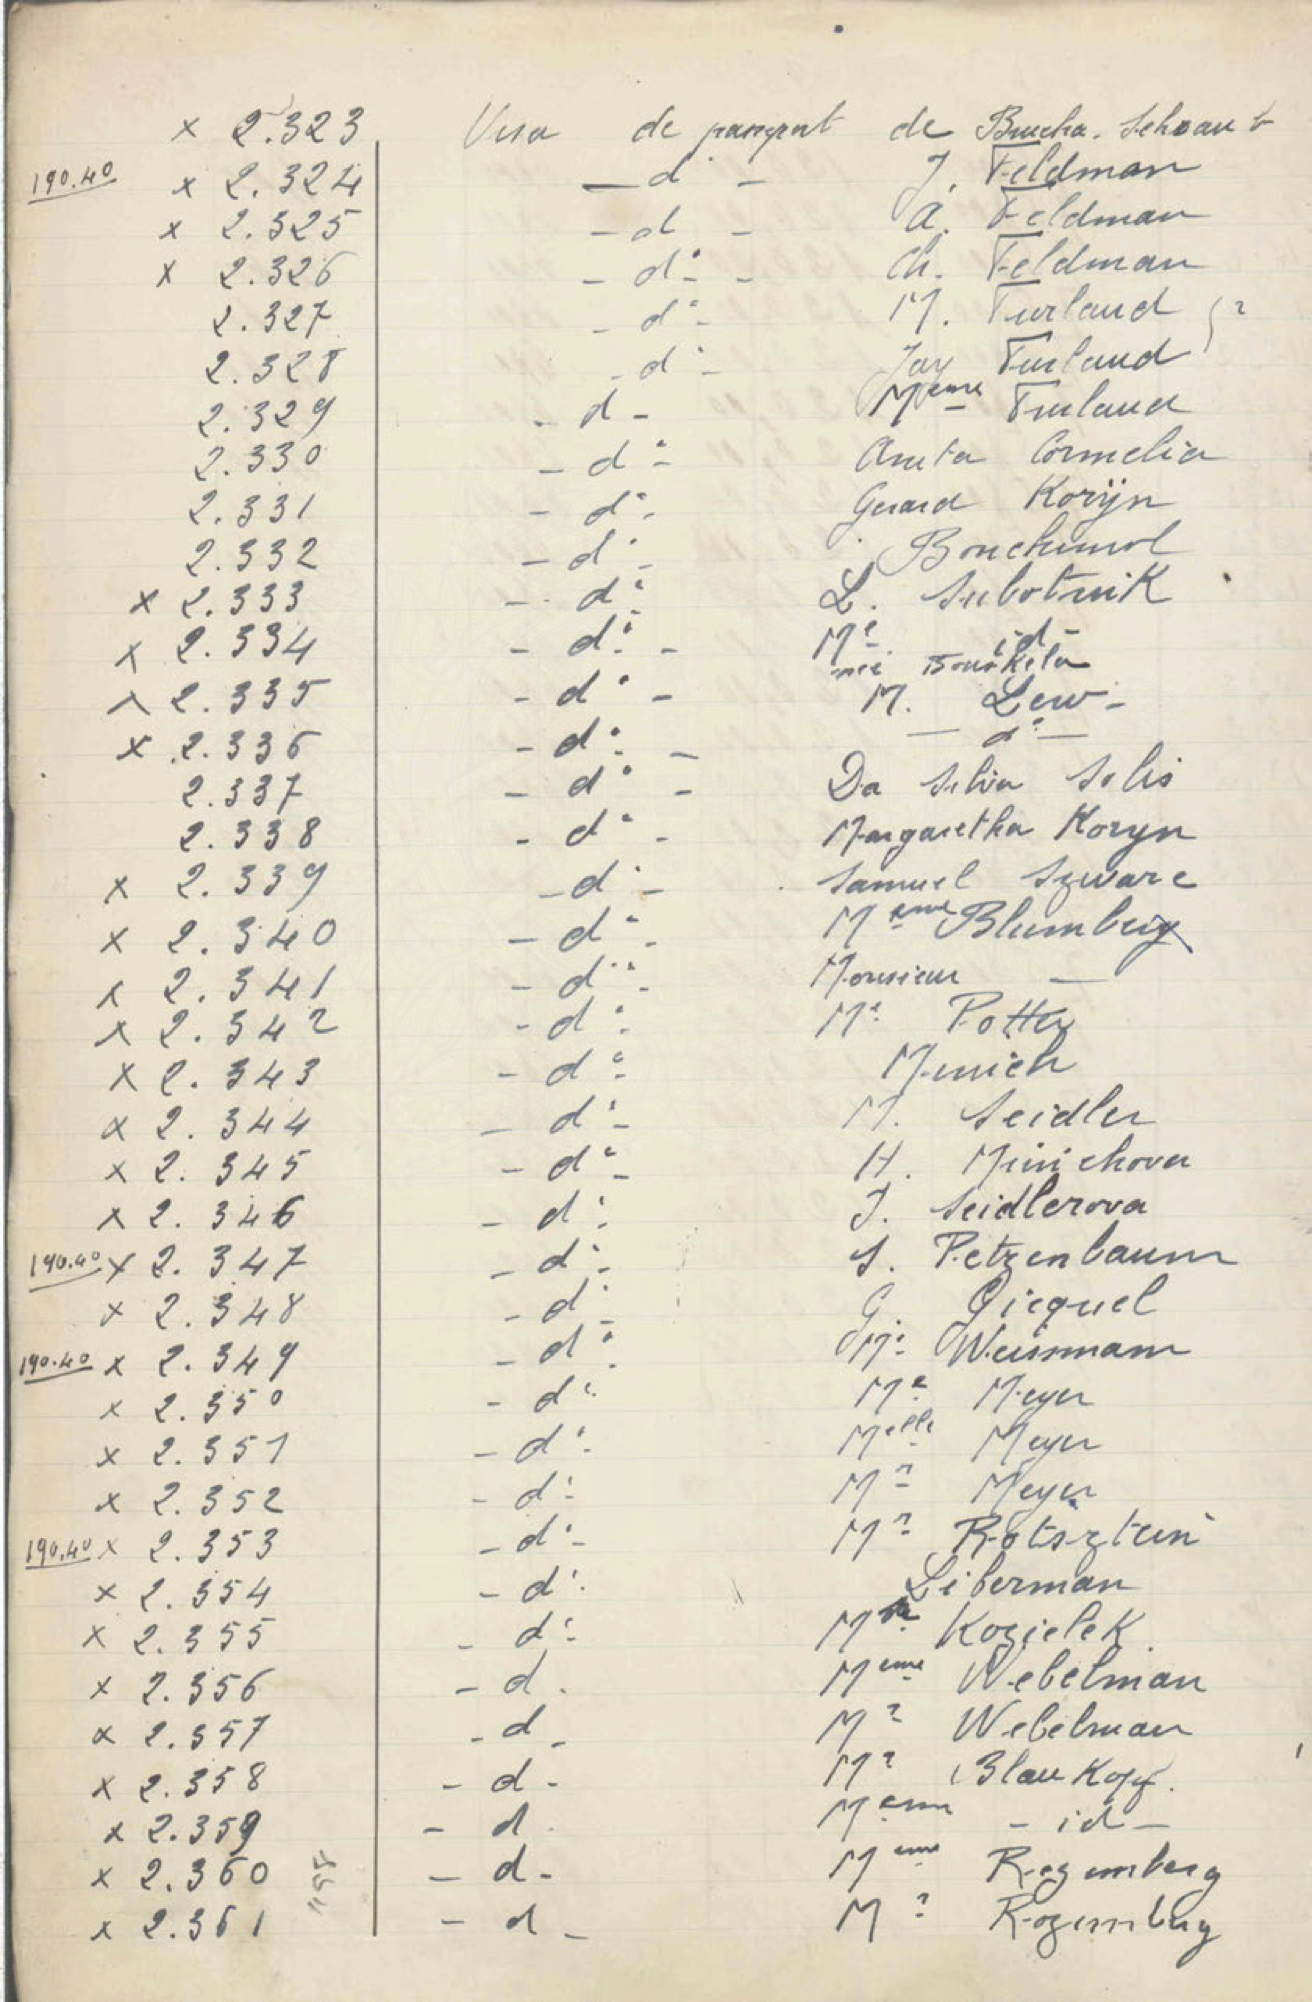 x 2.323 Visa de passeport de Brucha. Schwartz
190.40 x 2.324 - d - J. Feldman
x 2.325 - d - A. Feldman
x 2.326 - d° - Ch. Feldman
2.327 - d° - M. Furland } ?
2.328 - d° - Jay Furland
2.329 - d - Meme Furland
2.330 - d° - Anita Cornelia
2.331 - d° - Gerard Korijn
2.332 - d° -
x 2.333 - d° L. Subotnik
x 2.334 - d° - Me - id -
née
x 2.335 - d° - M. Lew -
x 2.336 - d° - - d° -
2.337 - d° - Da Silva Solis
2.338 - d° - Margaretha Koryn
x 2.339 - d° - Samuel Szwarc
x 2.340 - d° - Meme Blumberg
x 2.341 - d° - Monsieur -
x 2.342 - d° - Mr Potter
x 2.343 - d° - Munich
x 2.344 - d° - M. Seidler
x 2.345 - d° - H. Münichova
x 2.346 - d° - J. Seidlerova
190.40 x 2.347 - d° - S. Petzenbaum
x 2.348 - d° - G. Gicquel
190.40 x 2.349 - d° - Mr Weismann
x 2.350 - d° - Me Meyer
x 2.351 - d° - Melle Meyer
x 2.352 - d° - Mr Meyer
190.40 x 2.353 - d° - Mr Rotsztein
x 2.354 - d° - Liberman
x 2.355 - d° - Kozielek
x 2.356 - d - Meme Webelman
x 2.357 - d - Mr Webelman
x 2.358 - d - Mr Blaukopf.
x 2.359 - d - Meme - id -
x 2.360 - d - Meme Rozemberg
x 2.361 - d - Mr Rozemberg